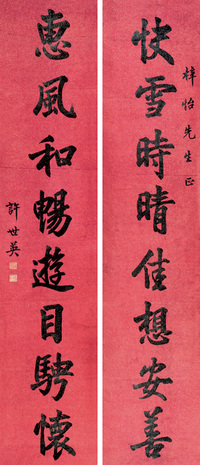 梓怡先生正
快雪時晴佳想安善
惠風和暢遊目騁懷
許世英